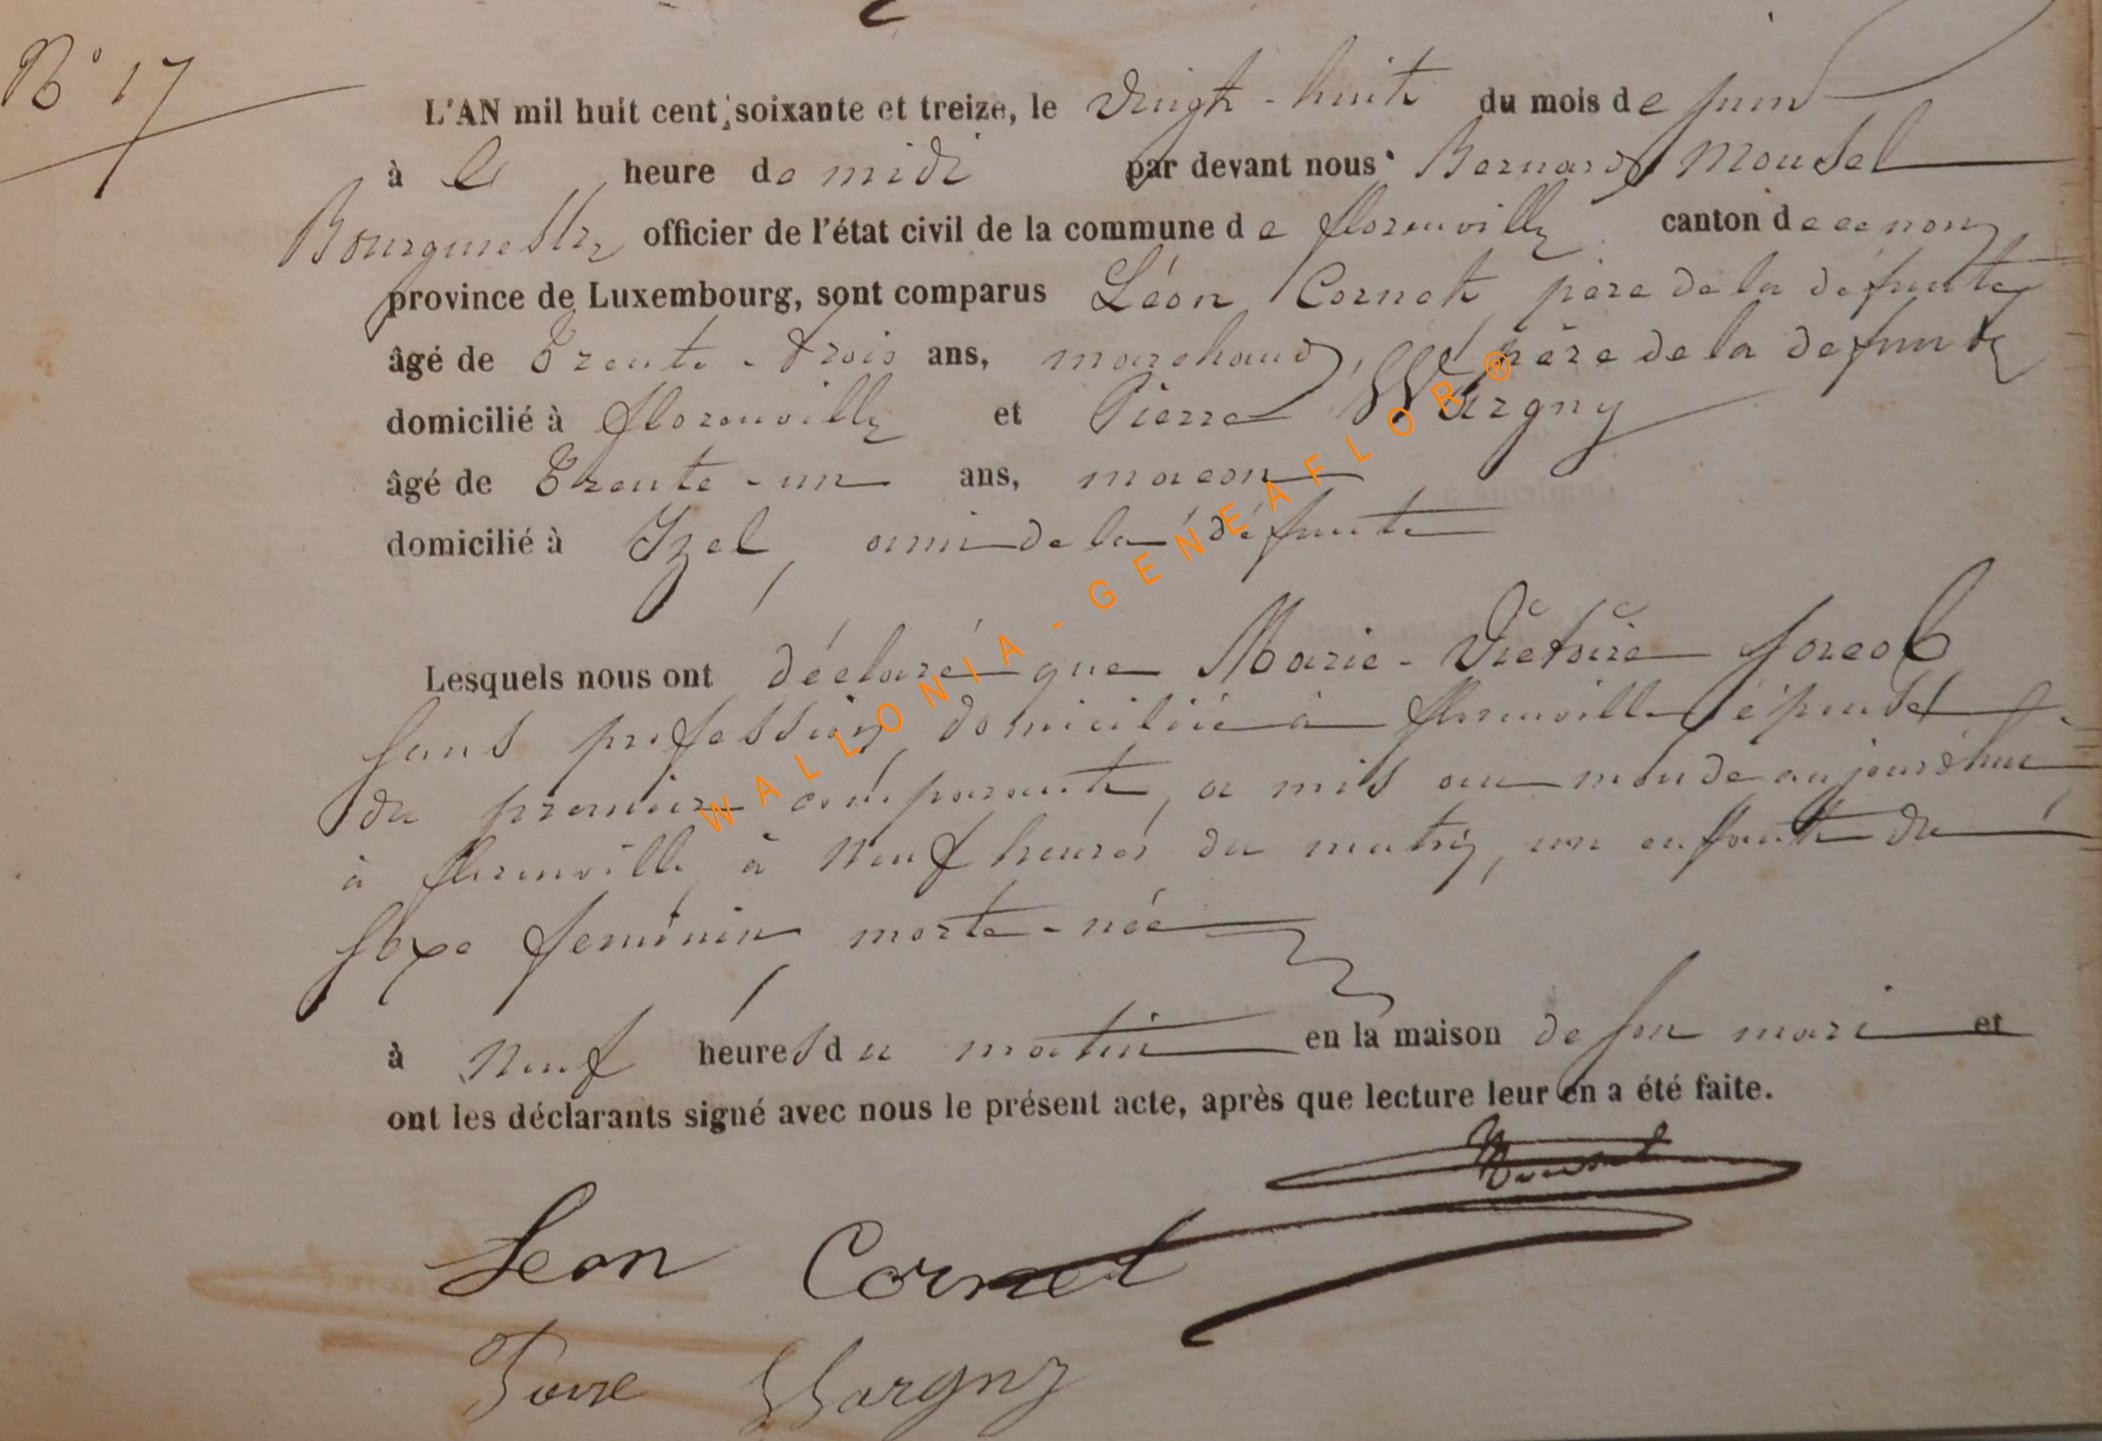 N° 17
L'AN mil huit cent soixante et treize, le vingt-huit du mois de juin
à la heure de midi par devant nous Bernard Mousel
Bourgmestre officier de l'état civil de la commune de florenville canton de ce nom,
province de Luxembourg, sont comparus Léon Cornet, père de la défunte,
âgé de Trente-trois ans, marchand, père de la défunte
domicilié à florenville et Pierre Wargny
âgé de Trente-un ans, maçon
domicilié à Izel, ami de la défunte
Lesquels nous ont déclaré que Marie-Victoire Jacob
sans profession, domiciliée à florenville, épouse
du premier comparant, a mis au monde aujourd'hui
à florenville, à neuf heures du matin, un enfant du
sexe feminin, morte-née
à neuf heures du matin en la maison de son mari et
ont les déclarants signé avec nous le présent acte, après que lecture leur en a été faite.
Mousel
Leon Cornet
Pierre Wargny
WALLONIA-GENEAFLOR®